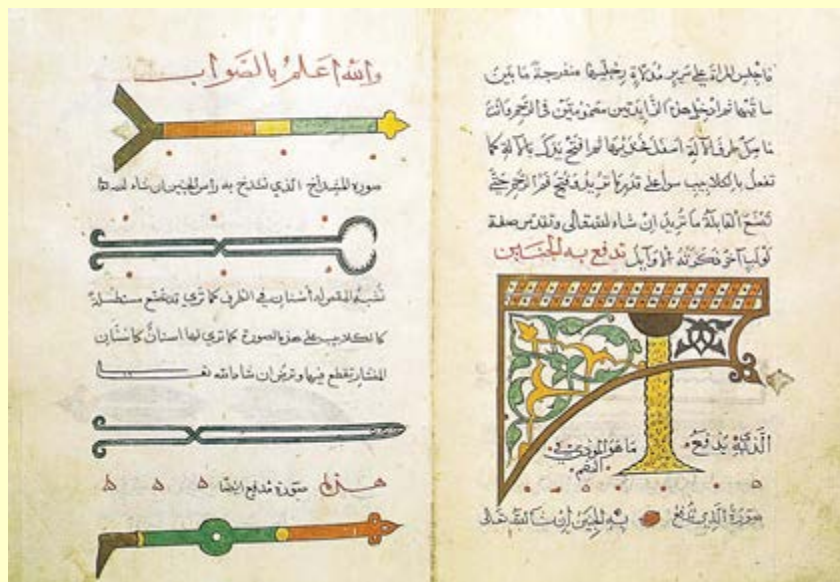 فاجلس المراة على سرير مدلاة رجليها منفرجة ما بين
ساقيها ثم ادخل هذا الزايدتين مضمومتين في الرحم وانت
ماسك طرف الآلة اسفل فخذيها ثم افتح يدك بالآلة كما
تفعل بالكلاليب سوا على قدر ما تريد وفتح فم الرحم حتى
تصنع القابلة ما تريد ان شاء الله تعالى وتقدس صفة
لولب آخر ذكرته الاوايل تدفع به الجنين
الذي يدفع ما هو الموذي في
الفم
صورة الذي تدفع به الجنين ان شا الله تعالى
والله اعلم بالصواب
صورة المشداخ الذي تشدخ به راس الجنين ان شاء الله
تشبه المقص له اسنان في الطرف كما ترى قد تصنع مستطيلة
كالكلاليب على هذه الصورة كما ترى لها اسنان كاسنان
المنشار تقطع فيها وترض ان شاء الله
هذه صورة مدفع ايضا